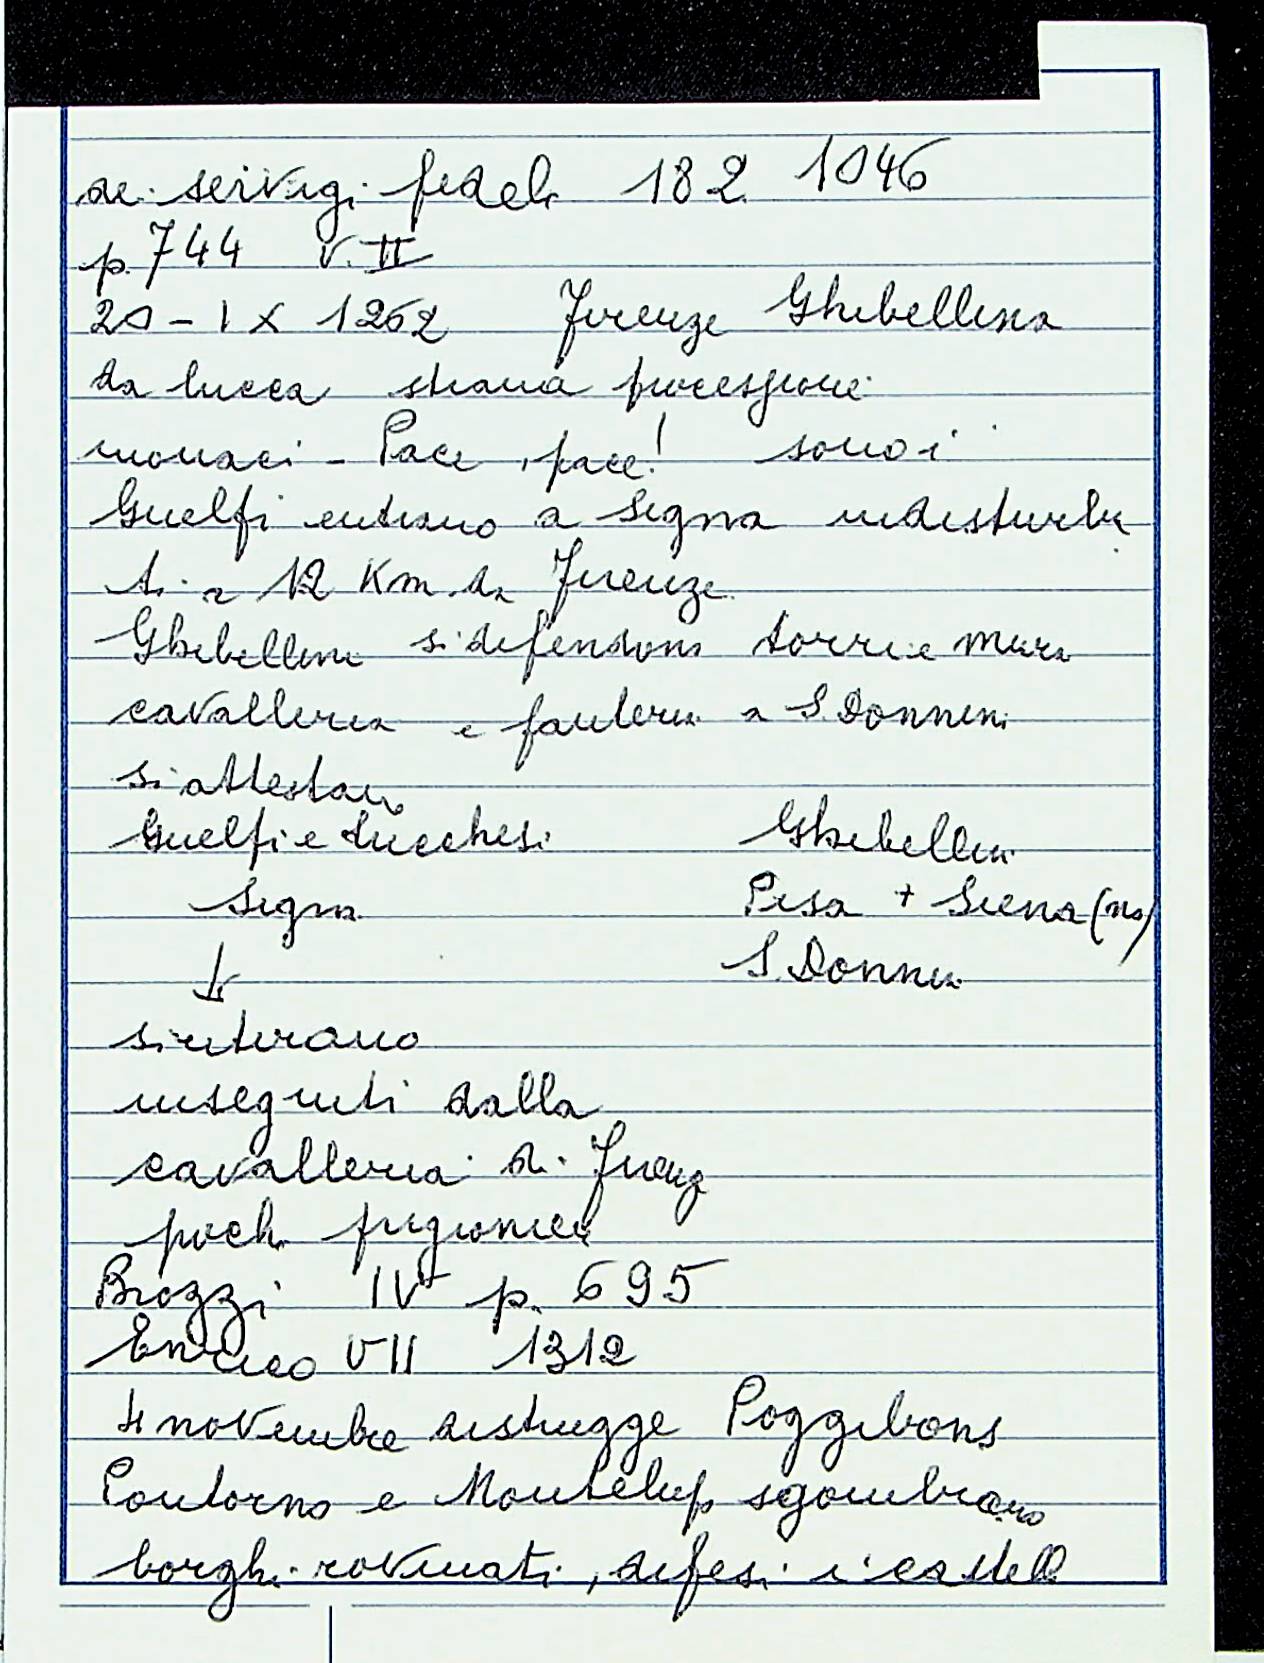 dei servigi fedeli 182 1046
p. 744 V. II
20 - IX 1262 Firenze Ghibellina
da lucca strana processione
monaci - Pace, pace! sono i
Guelfi entrano a Segna indisturba
ti a 12 Km da Firenze
Ghibellini si defendono torri e mura
cavalleria e fanteria a S. Donnini
si attestano
Guelfi e Lucchesi Ghibellini
Segna Pisa + Siena (no)
↓ S. Donnin
si ritirano
inseguiti dalla
cavalleria di Firenz
pochi prigionieri
Brozzi IV p. 695
Enrico VII 1312
4 novembre distrugge Poggibons
Pontorno e Montelupo sgombrano
borghi rovinati, difesi i castelli